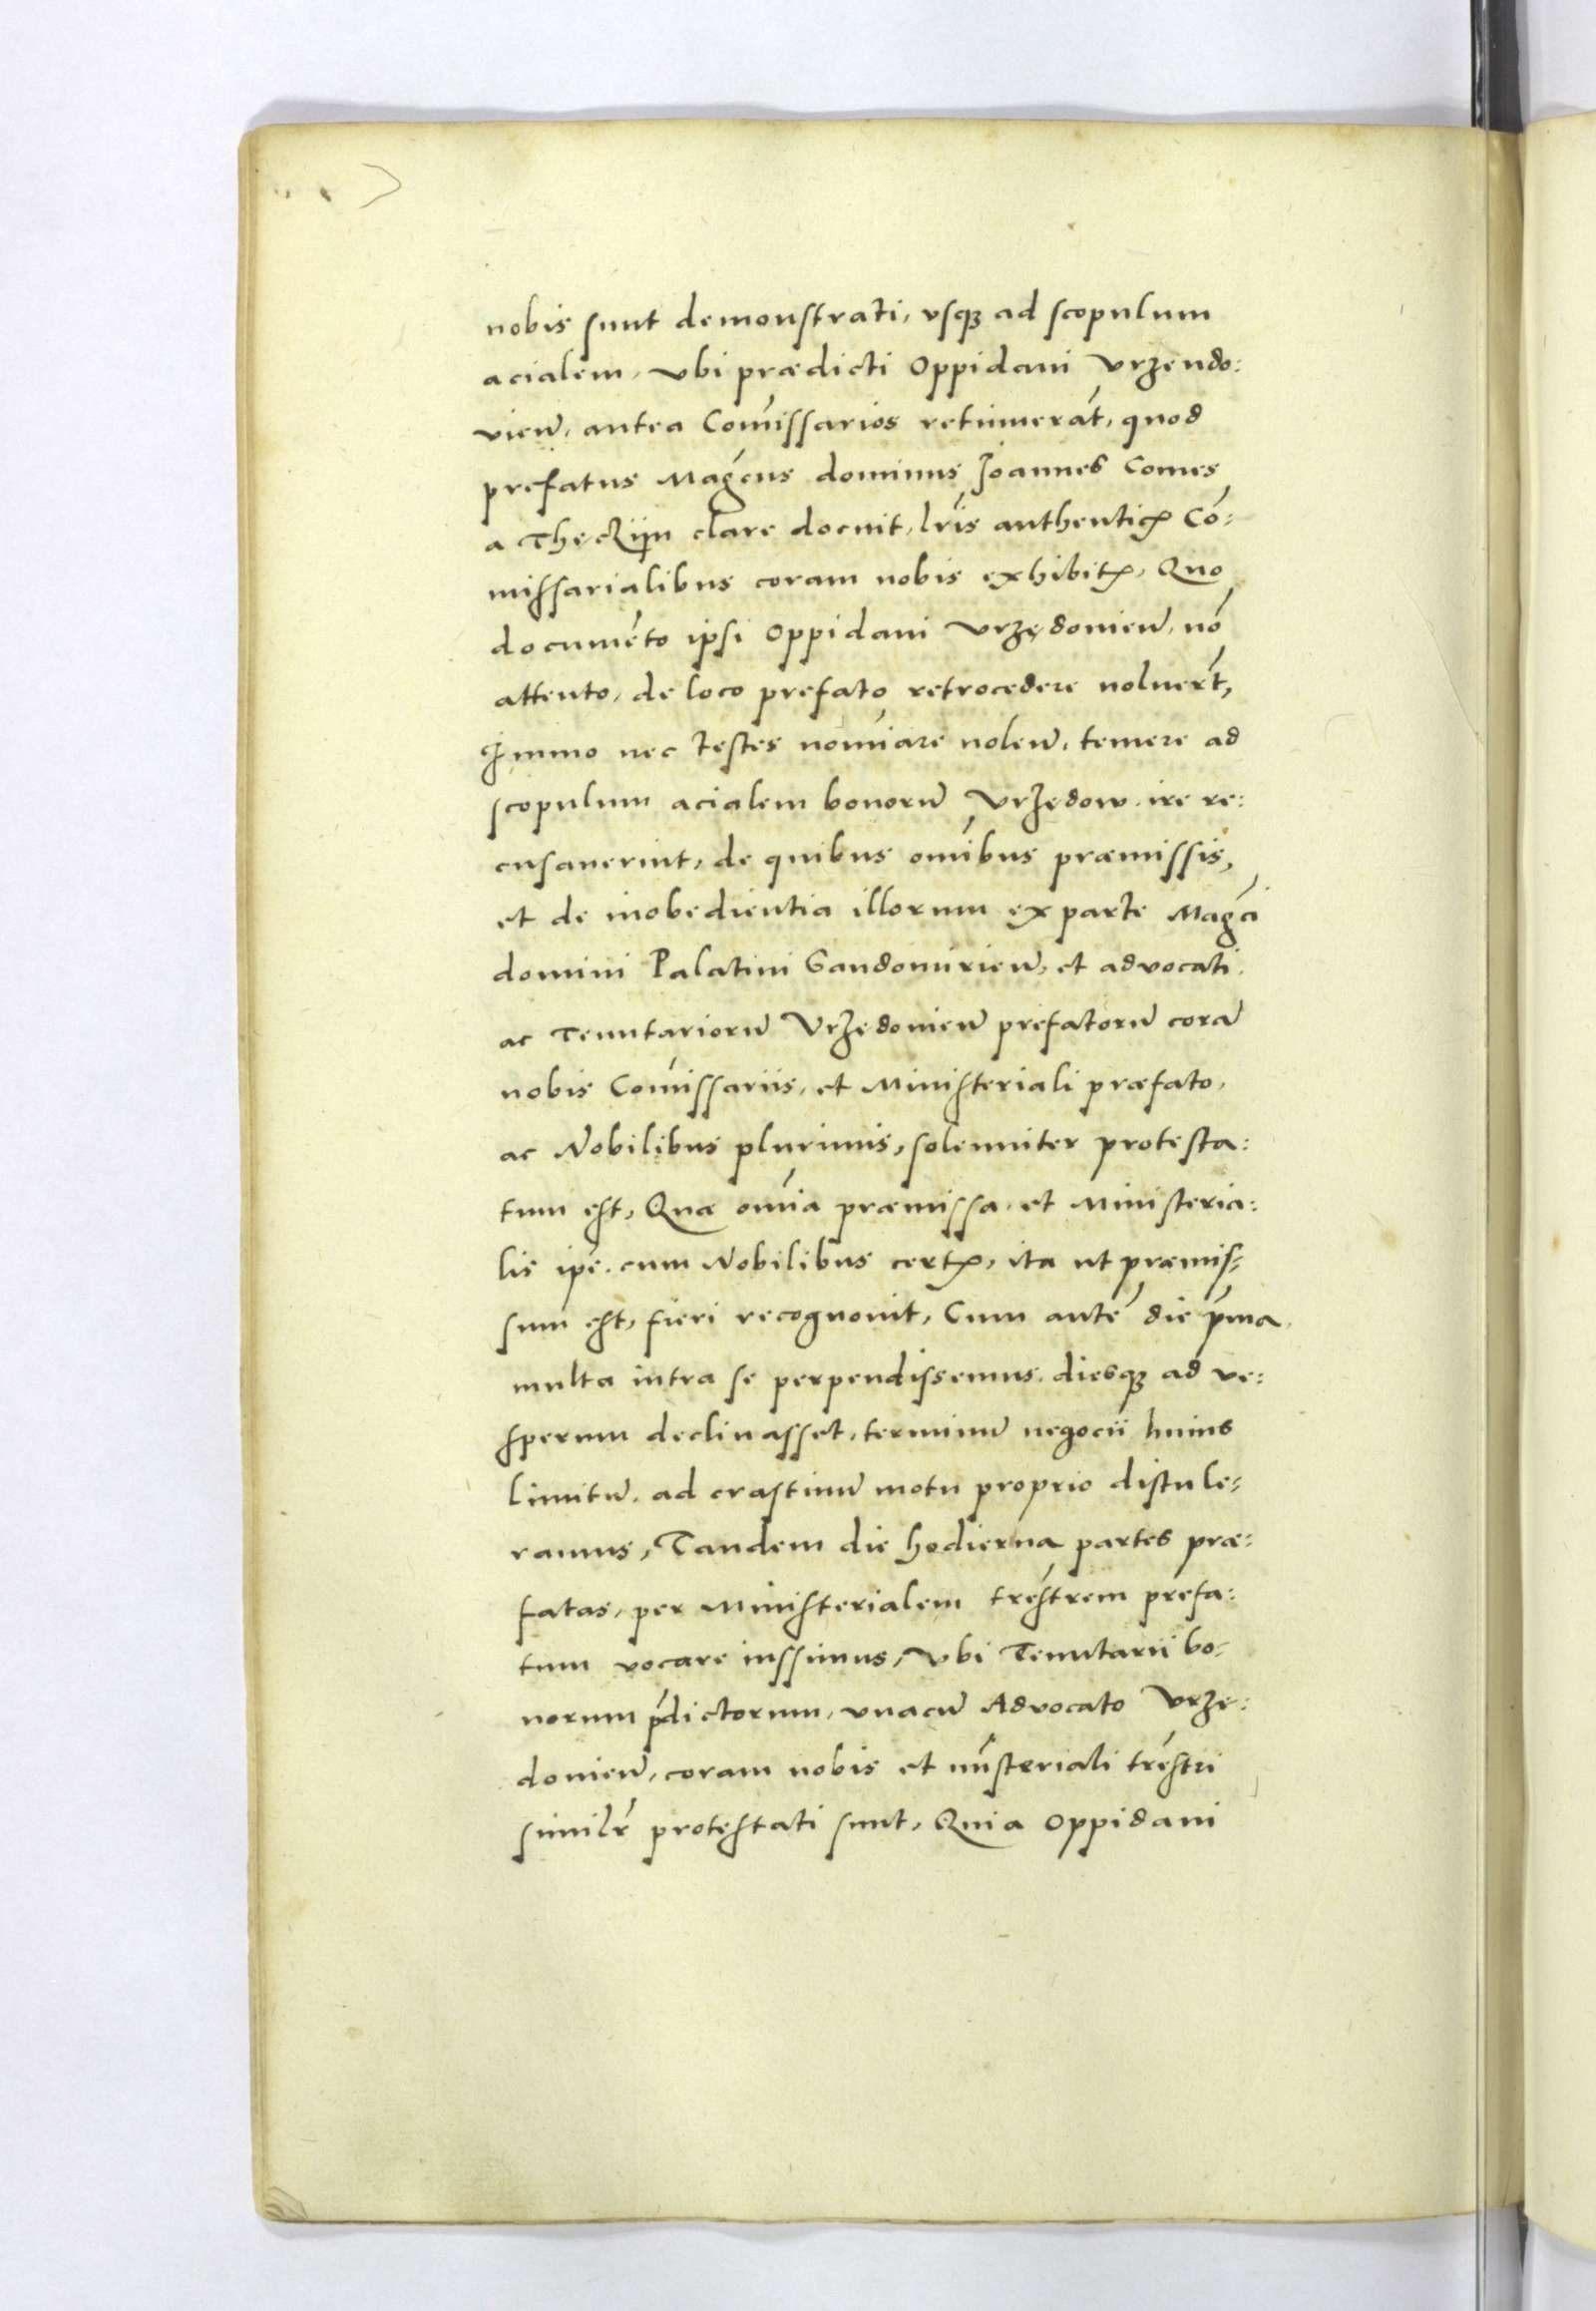 nobis sunt demonstrati, vsqȝ ad scopulum
acialem, vbi prædicti Oppidani Vrzendo:
vien̄, antea Com̄issarios retinuerāt, quod
prefatus Mag̃cus dominus Joannes Comes
a Theczijn clare docuit, lr̃is authenticꝭ Cō:
missarialibus coram nobis exhibitꝭ, Quo
documēto ipsi Oppidani Vrzędouien̄, nō
attento, de loco prefato retrocedere noluer̄t,
Immo nec testes nom̄iare nolen̄, temere ad
scopulum acialem bonorū Vrzędow ire re:
cusauerint, de quibus om̄ibus præmissis,
et de inobedientia illorum ex parte Mag̃ci
domini Palatini Sandomirien̄, et advocati,
ac Tenutariorū Vrzędouien̄ prefatorū corā
nobis Com̄issariis, et Ministeriali præfato,
ac Nobilibus plurimis, solenniter protesta:
tum est, Quæ om̄ia præmissa et Ministeria:
lis ip̄e cum Nobilibus certꝭ, ita ut præmis:
sum est, fieri recognouit, Cum autē die p̄ma,
multa intra se perpendissemus diesqȝ ad ve:
sperum declinasset, terminū negocii huius
limitū ad crastinū motu proprio distule:
ramus, Tandem die hodierna partes præ:
fatas, per Ministerialem tr̃estrem prefa:
tum vocare iussimus, Vbi Tenutarii bo:
norum p̄dictorum, vnacū Advocato Vrzę:
douien̄, coram nobis et mīsteriali tr̃estri
similr̃ protestati sunt, Quia Oppidani